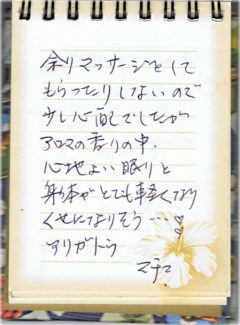 余りマッサージとして
もらったりしないので
少し心配でしたが
アロマの香りの中、
心地よい眠りと
身体がとても軽くなり
くせになりそう…
アリガトう
マチコ